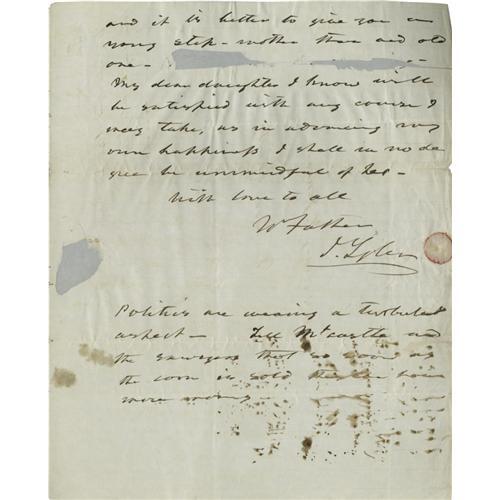 and it is better to give you a
young step-mother than and old
one -
My dear daughter I know will
be satisfied with any course I
may take, as in advancing my
own happiness I shall in no de
gree be unmindful of her -
With love to all
Yr Father
J. Tyler
Politics are wearing a turbulent
aspect - Tell Mr Castle and
the that so soon as
the corn is sold have
more